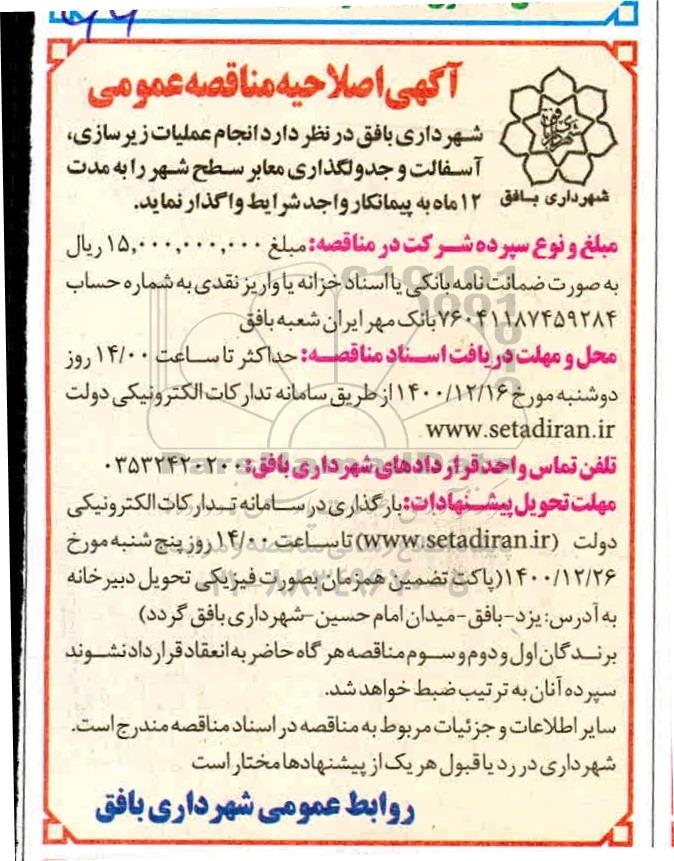 آگهی اصلاحیه مناقصه عمومی
شهرداری بافق در نظر دارد انجام عملیات زیرسازی،
آسفالت و جدولگذاری معابر سطح شهر را به مدت
۱۲ ماه به پیمانکار واجد شرایط واگذار نماید.
شهرداری بافق
مبلغ و نوع سپرده شرکت در مناقصه: مبلغ ۱۵,۰۰۰,۰۰۰,۰۰۰ ریال
به صورت ضمانت نامه بانکی یا اسناد خزانه یا واریز نقدی به شماره حساب
۷۶۰۴۱۱۸۷۴۵۹۲۸۴ بانک مهر ایران شعبه بافق
محل و مهلت دریافت اسناد مناقصه: حداکثر تا ساعت ۱۴/۰۰ روز
دوشنبه مورخ ۱۴۰۰/۱۲/۱۶ از طریق سامانه تدارکات الکترونیکی دولت
www.setadiran.ir
تلفن تماس واحد قراردادهای شهرداری بافق: ۰۳۵۳۲۴۲۰۲۰۰
مهلت تحویل پیشنهادات: بارگذاری در سامانه تدارکات الکترونیکی
دولت (www.setadiran.ir) تا ساعت ۱۴/۰۰ روز پنج شنبه مورخ
۱۴۰۰/۱۲/۲۶ (پاکت تضمین همزمان بصورت فیزیکی تحویل دبیرخانه
به آدرس: یزد-بافق-میدان امام حسین-شهرداری بافق گردد)
برندگان اول و دوم و سوم مناقصه هر گاه حاضر به انعقاد قرارداد نشوند
سپرده آنان به ترتیب ضبط خواهد شد.
سایر اطلاعات و جزئیات مربوط به مناقصه در اسناد مناقصه مندرج است.
شهرداری در رد یا قبول هر یک از پیشنهادها مختار است
روابط عمومی شهرداری بافق